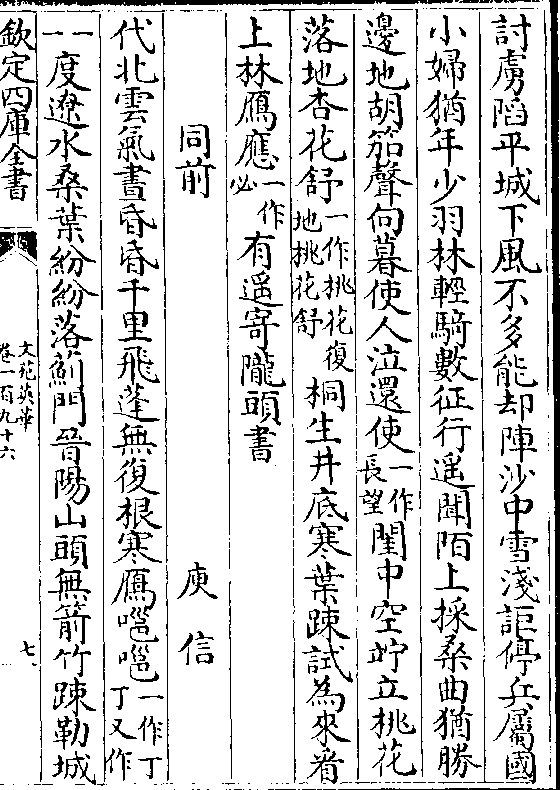 討虜陷平城下風不多能却陣沙中雪淺詎停兵屬國
小婦猶年少羽林輕騎數征行遥聞陌上採桑曲猶勝
邊地胡笳聲向暮使人泣還使一作長望閨中空竚立桃花
落地杏花舒一作桃花復地桃花舒桐生井底寒葉踈試為來看
上林鴈應一作必有遥寄隴頭書
同前 庾信
代北雲氣晝昏昏千里飛蓬無復根寒鴈嗈嗈一作丁丁又作
一一度遼水桑葉紛紛落薊門晉陽山頭無箭竹踈勒城
欽定四庫全書
文苑英華
卷一百九十六
七